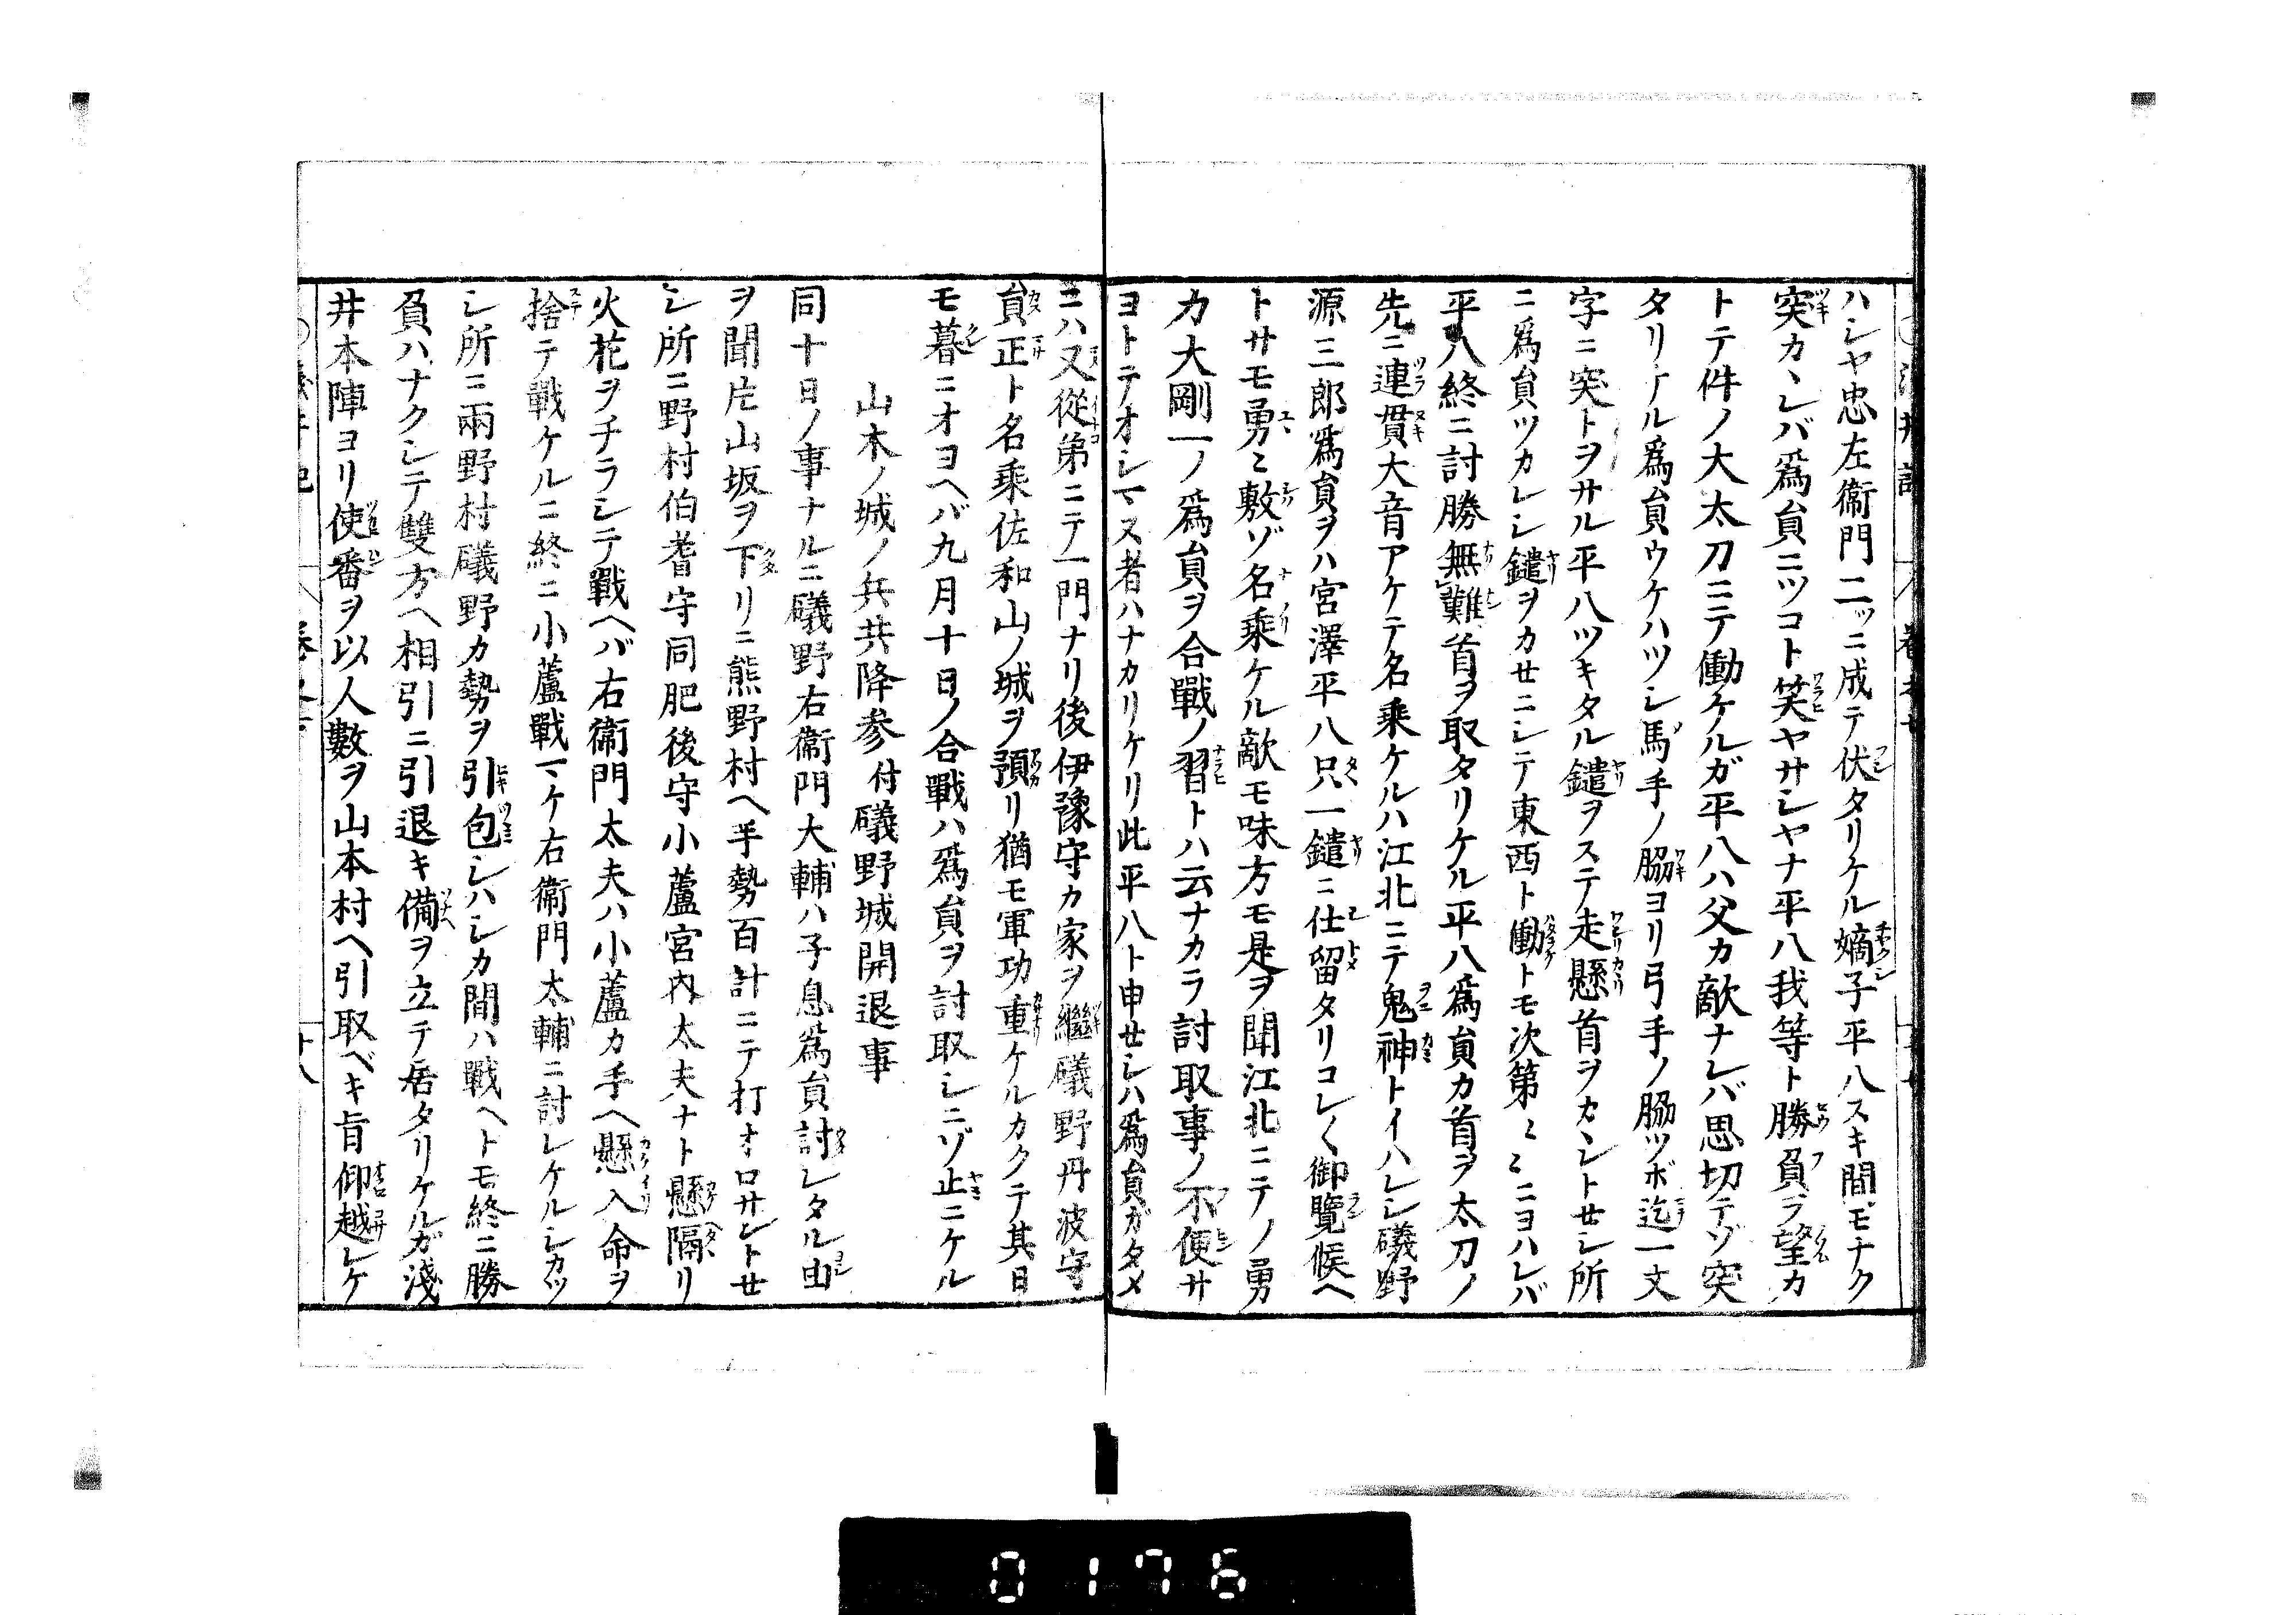 ハシヤ忠左衞門二ッニ成テ伏タリケル嫡子平八スキ間モナク
突カヽレバ爲貟ニツコト笑ヤサシヤナ平八我等ト勝負ヲ望カ
トテ件ノ大太刀ニテ働ケルガ平八ハ父カ敵ナレバ思切テゾ突
タリケル爲貟ウケハツシ馬手ノ脇ヨリ弓手ノ脇ツボ迄一文
字ニ突トヲサル平八ツキタル鑓ヲステ走懸首ヲカントせシ所
ニ爲貟ツカレシ鑓ヲカせニシテ東西ト働トモ次第〻〻ニヨハレバ
平八終ニ討勝無難首ヲ取タリケル平八爲貟カ首ヲ太刀ノ
先ニ連貫大音アケテ名乘ケルハ江北ニテ鬼神トイハレシ礒野
源三郎爲貟ヲハ宮澤平八只一鑓ニ仕留タリコレ〱御覽候ヘ
トサモ勇〻敷ゾ名乘ケル敵モ味方モ是ヲ聞江北ニテノ勇
力大剛一ノ爲貟ヲ合戰ノ習トハ云ナカラ討取事ノ不便サ
ヨトテオシマヌ者ハナカリケリ此平八ト申せシハ爲貟ガタメ
ニハ又從弟ニテ一門ナリ後伊豫守カ家ヲ繼礒野丹波守
貟正ト名乘佐和山ノ城ヲ預リ猶モ軍功重ケルカクテ其日
モ暮ニオヨヘバ九月十日ノ合戰ハ爲貟ヲ討取シニゾ止ニケル
山本ノ城ノ兵共降参付礒野城開退事
同十日ノ事ナルニ礒野右衞門大輔ハ子息爲貟討レタル由
ヲ聞片山坂ヲ下リニ熊野村ヘ手勢百計ニテ打オロサレトせ
シ所ニ野村伯耆守同肥後守小蘆宮内太夫ナト懸隔リ
火花ヲチラシテ戰ヘバ右衞門太夫ハ小蘆カ手ヘ懸入命ヲ
捨テ戰ケルニ終ニ小蘆戰マケ右衞門太輔ニ討レケルシカツ
シ所ニ兩野村礒野カ勢ヲ引包シハシカ間ハ戰ヘトモ終ニ勝
負ハナクシテ雙方ヘ相引ニ引退キ備ヲ立テ居タリケルガ淺
井本陣ヨリ使番ヲ以人數ヲ山本村ヘ引取ベキ旨仰越レケ
0176